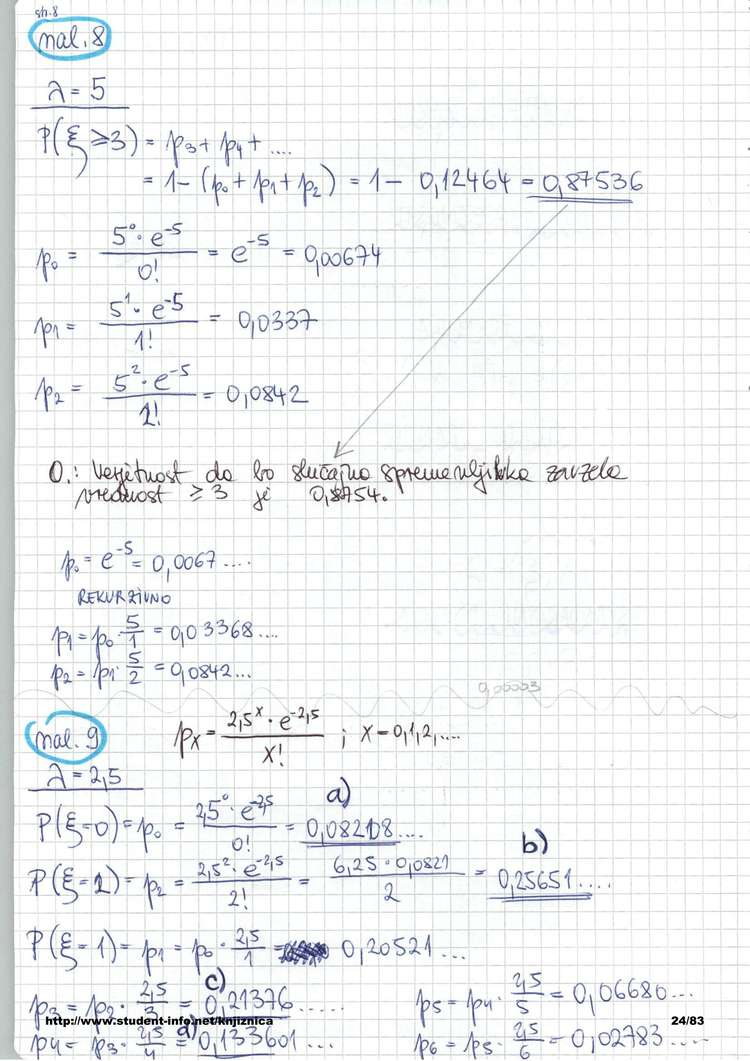 str.8
nal. 8
λ = 5
P(ξ ≥ 3) = p₃ + p₄ + ....
= 1 - (p₀ + p₁ + p₂) = 1 - 0,12464 = 0,87536
p₀ = 5⁰ · e⁻⁵ / 0! = e⁻⁵ = 0,00674
p₁ = 5¹ · e⁻⁵ / 1! = 0,0337
p₂ = 5² · e⁻⁵ / 2! = 0,0842
O.: Verjetnost da bo slučajna spremenljivka zavzela
vrednost ≥ 3 je 0,8754.
p₀ = e⁻⁵ = 0,0067 ....
REKURZIVNO
p₁ = p₀ · 5/1 = 0,03368 ...
p₂ = p₁ · 5/2 = 0,0842 ...
nal. 9 pₓ = 2,5ˣ · e⁻²,⁵ / x! ; x = 0,1,2, ....
λ = 2,5
a)
P(ξ=0) = p₀ = 2,5⁰ · e⁻²,⁵ / 0! = 0,08208 ....
b)
P(ξ=2) = p₂ = 2,5² · e⁻²,⁵ / 2! = 6,25 · 0,0821 / 2 = 0,25651 ....
P(ξ=1) = p₁ = p₀ · 2,5/1 = 0,20521 ...
c)
p₃ = p₂ · 2,5/3 = 0,21376 ..... p₅ = p₄ · 2,5/5 = 0,06680 ...
http://www.student-info.net/knjiznica 24/83
d)
p₄ = p₃ · 2,5/4 = 0,133601 ... p₆ = p₅ · 2,5/6 = 0,02783 ....